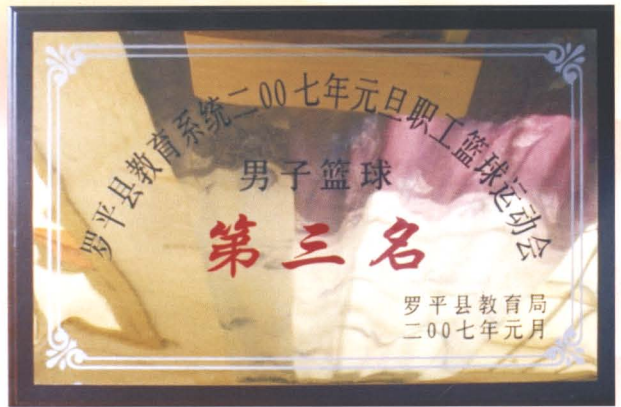 罗平县教育系统二00七年元旦职工篮球运动会
男子篮球
第三名
罗平县教育局
二00七年元月